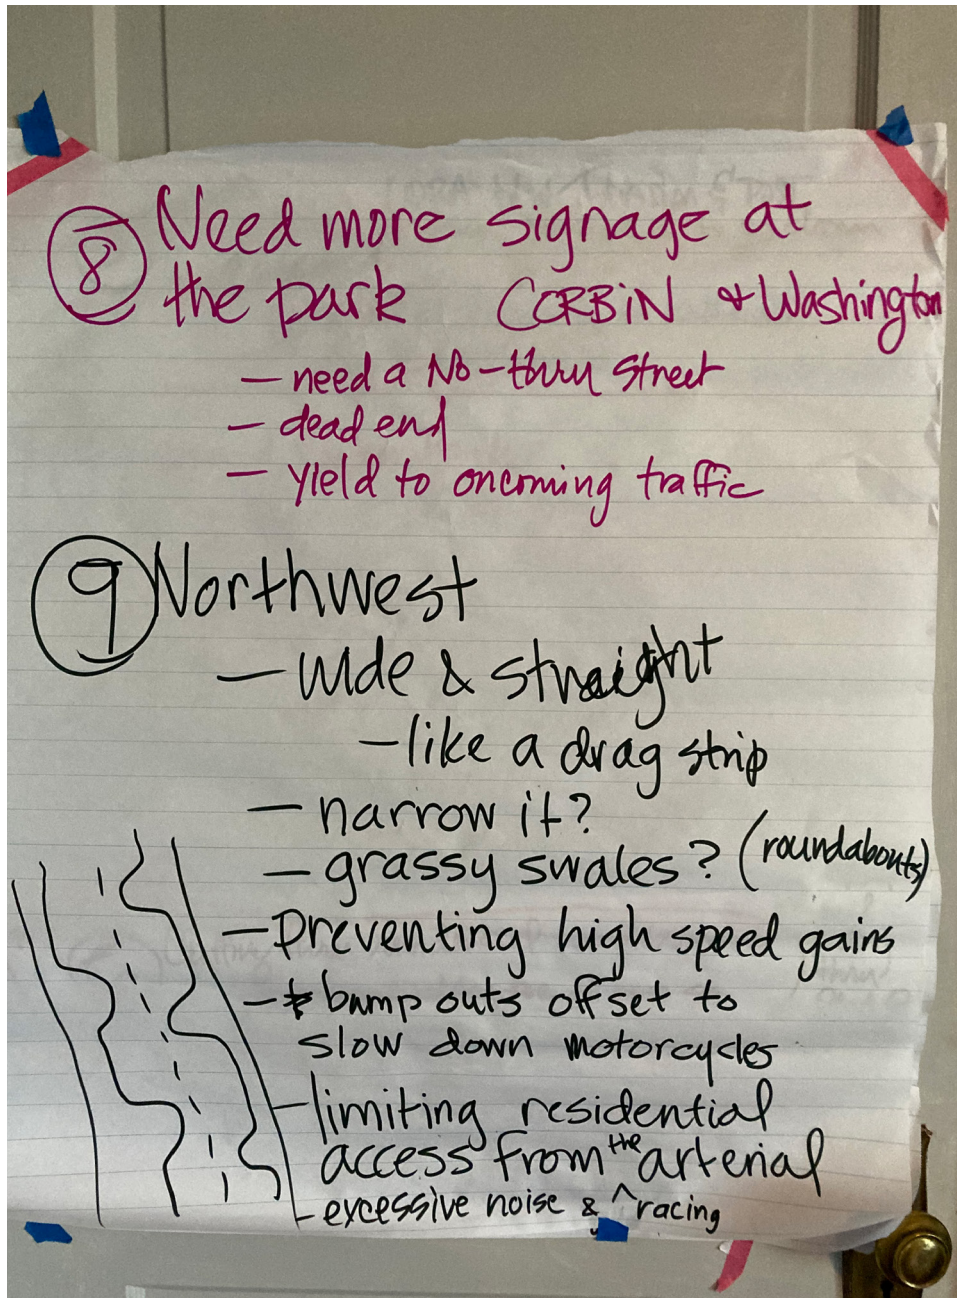 8 Need more signage at
the park CORBIN & Washington
- need a No-thru street
- dead end
- yield to oncoming traffic
9 Northwest
- wide & straight
- like a drag strip
- narrow it?
- grassy swales? (roundabouts)
- Preventing high speed gains
- * bump outs offset to
slow down motorcycles
- limiting residential
access from the arterial
- excessive noise & ^ racing